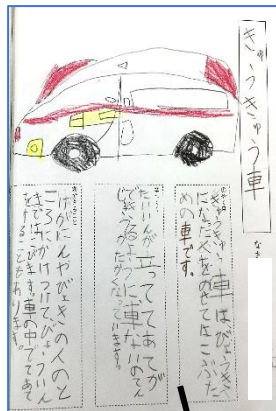 きゅうきゅう車
なまえ
きゅうきゅう車は、びょうきに
なった人をのせてはこぶた
めの車です。
たいいんが立っててあてが
できるように車ないのてん
じょうがたかくなっています。
けがにんやびょうきの人のと
ころにかけつけて、びょういん
まではこびます。車の中でてあて
をすることもあります。